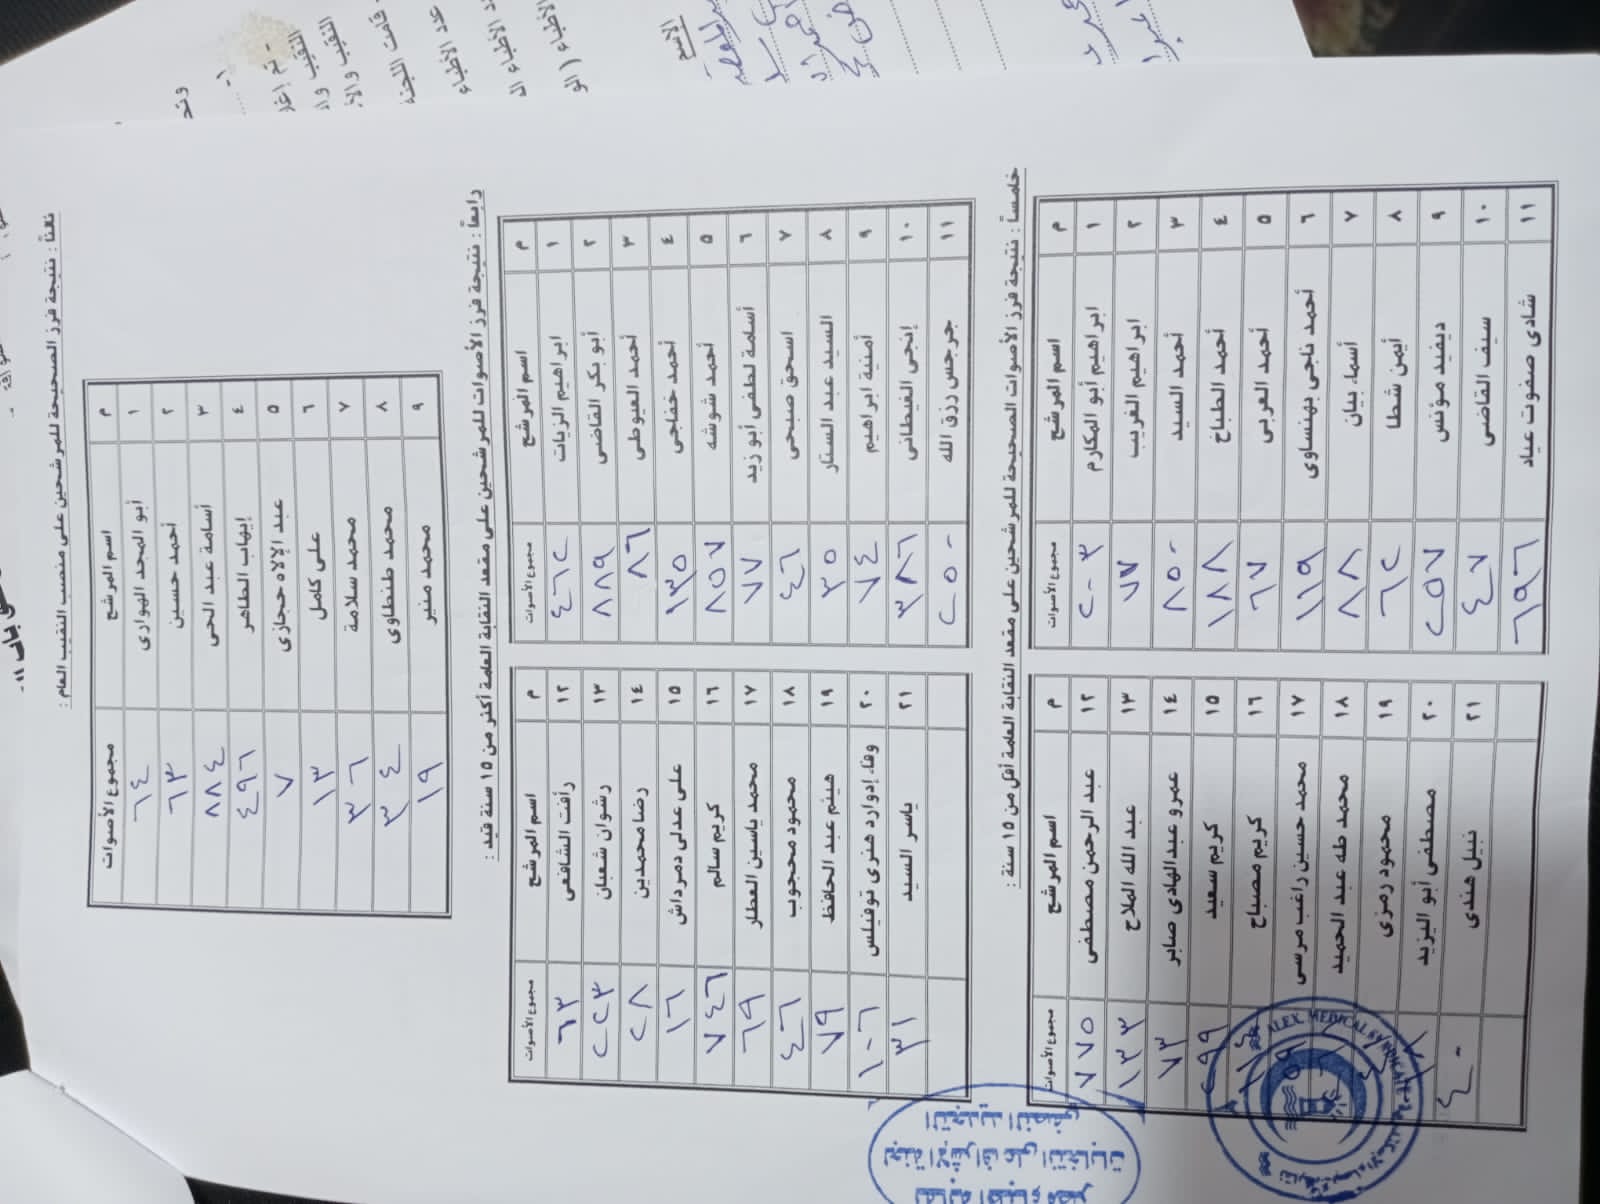 ثالثاً : نتيجة فرز الصحيحة للمرشحين على منصب النقيب العام :
م اسم المرشح مجموع الأصوات
١ أبو المجد الهوارى ٦٤
٢ أحمد حسين ٦٣
٣ أسامة عبد الحى ٨٨٤
٤ إيهاب الطاهر ٤٩٦
٥ عبد الإلاه حجازى ٧
٦ على كامل ١٣
٧ محمد سلامة ٣٦
٨ محمد طنطاوى ٣٤
٩ محمد منير ١٩
رابعاً : نتيجة فرز الأصوات للمرشحين على مقعد النقابة العامة أكثر من ١٥ سنة قيد :
م اسم المرشح مجموع الأصوات
١ ابراهيم الزيات ٤٦٢
٢ أبو بكر القاضى ٨٨٩
٣ أحمد العيوطى ٨٦
٤ أحمد خفاجى ١٣٥
٥ أحمد شوشه ٨٥٧
٦ أسامة لطفى أبو زيد ٧٧
٧ اسحق صبحى ٤٦
٨ السيد عبد الستار ٣٥
٩ أمنية ابراهيم ٧٤
١٠ إنجى الغيطانى ٣٨٦
١١ جرجس رزق الله ٢٥٠
م اسم المرشح مجموع الأصوات
١٢ رأفت الشافعى ٦٣
١٣ رشوان شعبان ٢٢٣
١٤ رضا محمدين ٢٨
١٥ على عدلى دمرداش ١٦
١٦ كريم سالم ٧٤٦
١٧ محمد ياسين العطار ٦٩
١٨ محمود محجوب ٤٦
١٩ هيثم عبد الحافظ ٧٩
٢٠ وفاء إدوارد هنرى توفيلس ١٠٦
٢١ ياسر السيد ٣١
خامساً : نتيجة فرز الأصوات الصحيحة للمرشحين على مقعد النقابة العامة أقل من ١٥ سنة :
م اسم المرشح مجموع الأصوات
١ ابراهيم أبو المكارم ٢٠٣
٢ ابراهيم الغريب ٧٧
٣ أحمد السيد ٨٥٠
٤ أحمد الطباخ ١٨٨
٥ أحمد العربى ٦٧
٦ أحمد ناجى بهنساوى ١١٩
٧ أسماء بيان ٨٨
٨ أيمن شطا ٦٢
٩ ديفيد مؤنس ٢٥٧
١٠ سيف القاضى ٤٧
١١ شادى صفوت عياد ٦٩٦
م اسم المرشح مجموع الأصوات
١٢ عبد الرحمن مصطفى ٧٧٥
١٣ عبد الله الملاح ١٣٣
١٤ عمرو عبدالهادى صابر ٧٣
١٥ كريم سعيد ٢٩٩
١٦ كريم مصباح
١٧ محمد حسين راغب مرسى
١٨ محمد طه عبد الحميد
١٩ محمود رمزى
٢٠ مصطفى أبو اليزيد
٢١ نبيل هندى ٤٠
ALEX. MEDICAL SYNDICATE
نقابة أطباء مصر
لجنة الإشراف على انتخابات
التجديد النصفى
الاسم